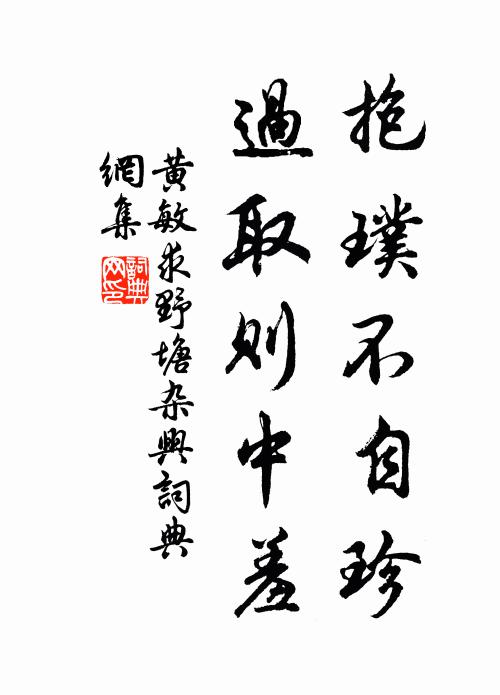 抱璞不自珍
過取則中羞
黄敏求野塘杂興詞典
網集
詞典
网印